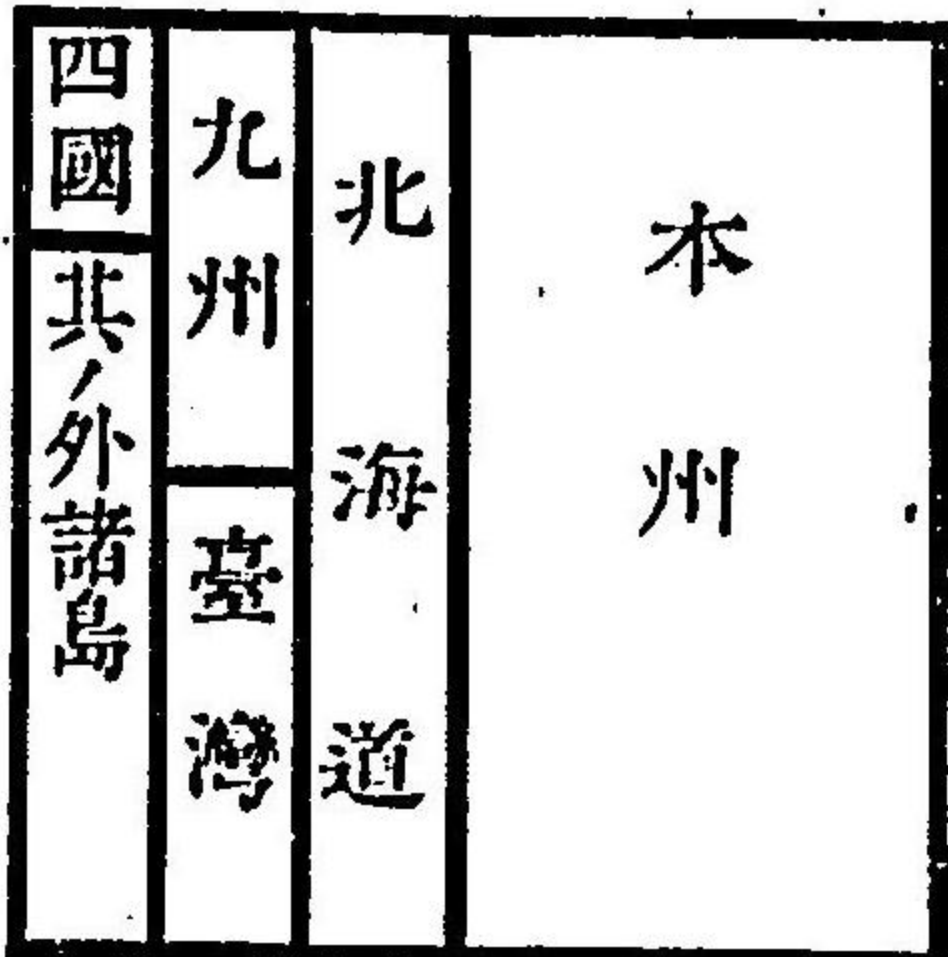 本州
北海道
九州
臺灣
四國
其ノ外諸島